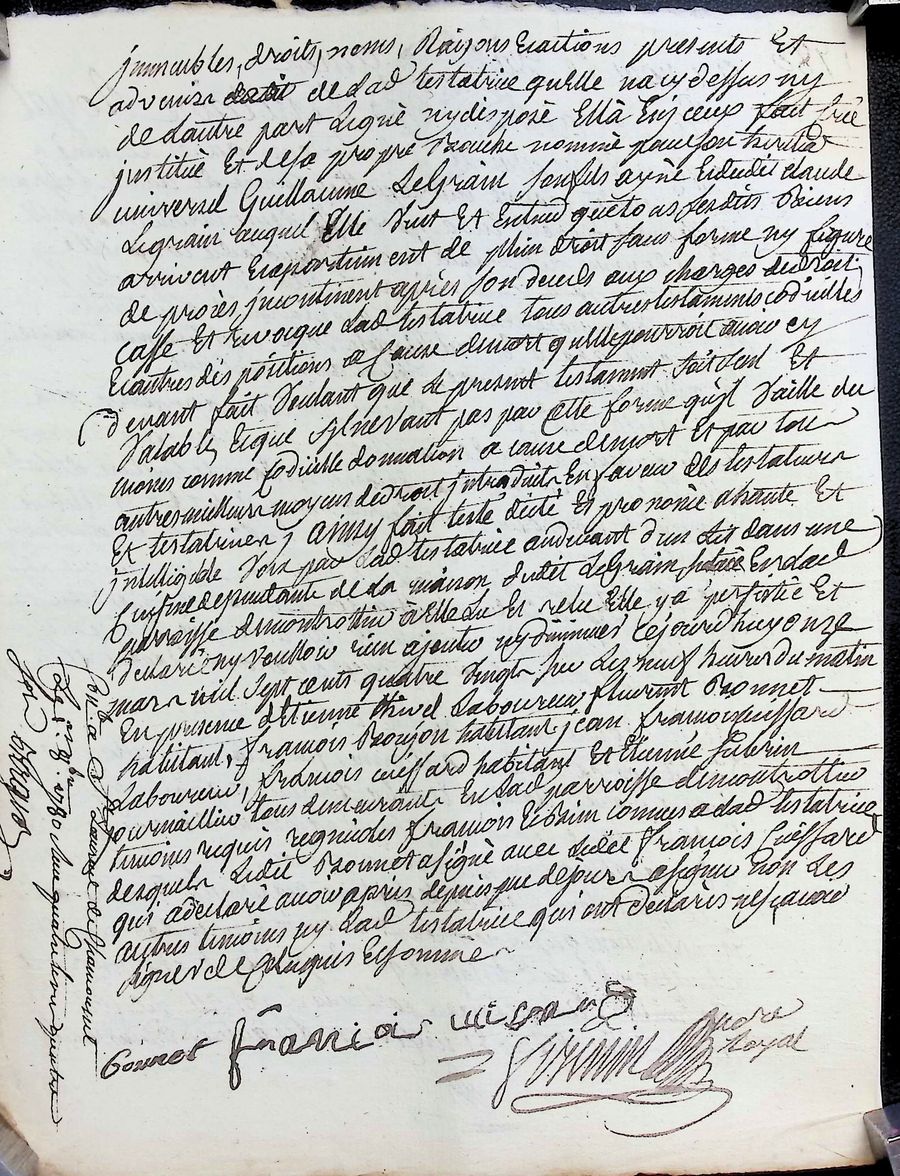 jmmeubles, droits, noms, Raizons Eractions presents Et
advenir de Lad testatrice quelle na cy dessus ny
de Lautre part Legué ny disposé Ella En jceux fait
jnstitué Et desa propre Bouche nommé pour son heritier
universel Guillaume LeGrain son fils ayné Edudit claude
Legrain auquel Elle Veut Et Entend que tous sesdits Biens
arrivent Erapartiennent de plein droit sans forme ny figure
de procès jncontinent après son deceds aux charges dudroit
Casse Et Revoque Lad testatrice tous autres testaments codicilles
Erautres dis positions a Cause demort quelle pourroit avoir cy
devant fait Voulant que Le present testament soit seul Et
Valable, Erque sy ne Vaut pas par cette forme quyl Vaille du
moins comme Codicille donnation a cause demort Et par tous
autres meilleurs moyens dedroit jntroduits En faveur des testateurs
Et testatrices, Ainsy fait testé dicté Et prononcé a haute Et
jntelligible Voix par Lad testatrice au devant d'un Lit dans une
Cuisine dependante de La maison dudet LeGrain Enlad
parroisse demontrottier a Elle Lu Et relu Elle y a persistée Et
declaré ny Vouloir rien ajouter ny diminuer Cejourdhuy onze
mars mil sept cents quatre Vingts sur Les neuf heures du matin
En presence d'Etienne Laboureur, Bonnet
habitant, francois Boujon habitant jean francois
Laboureur, francois habitant Et Etienne
tous demeurants En Lad parroisse demontrottier
temoins requis francois connues a Lad testatrice,
desquels Ledit Bonnet a signé avec Ledet francois
qui a declaré avoir apris depuis peu de jours a signer non Les
autres temoins ny Lad testatrice qui ont declarés ne scavoir
signer de ce Enquis Et sommés
Bonnet francois
Royal
Con.lé a St Laurent de Chamousset
1780